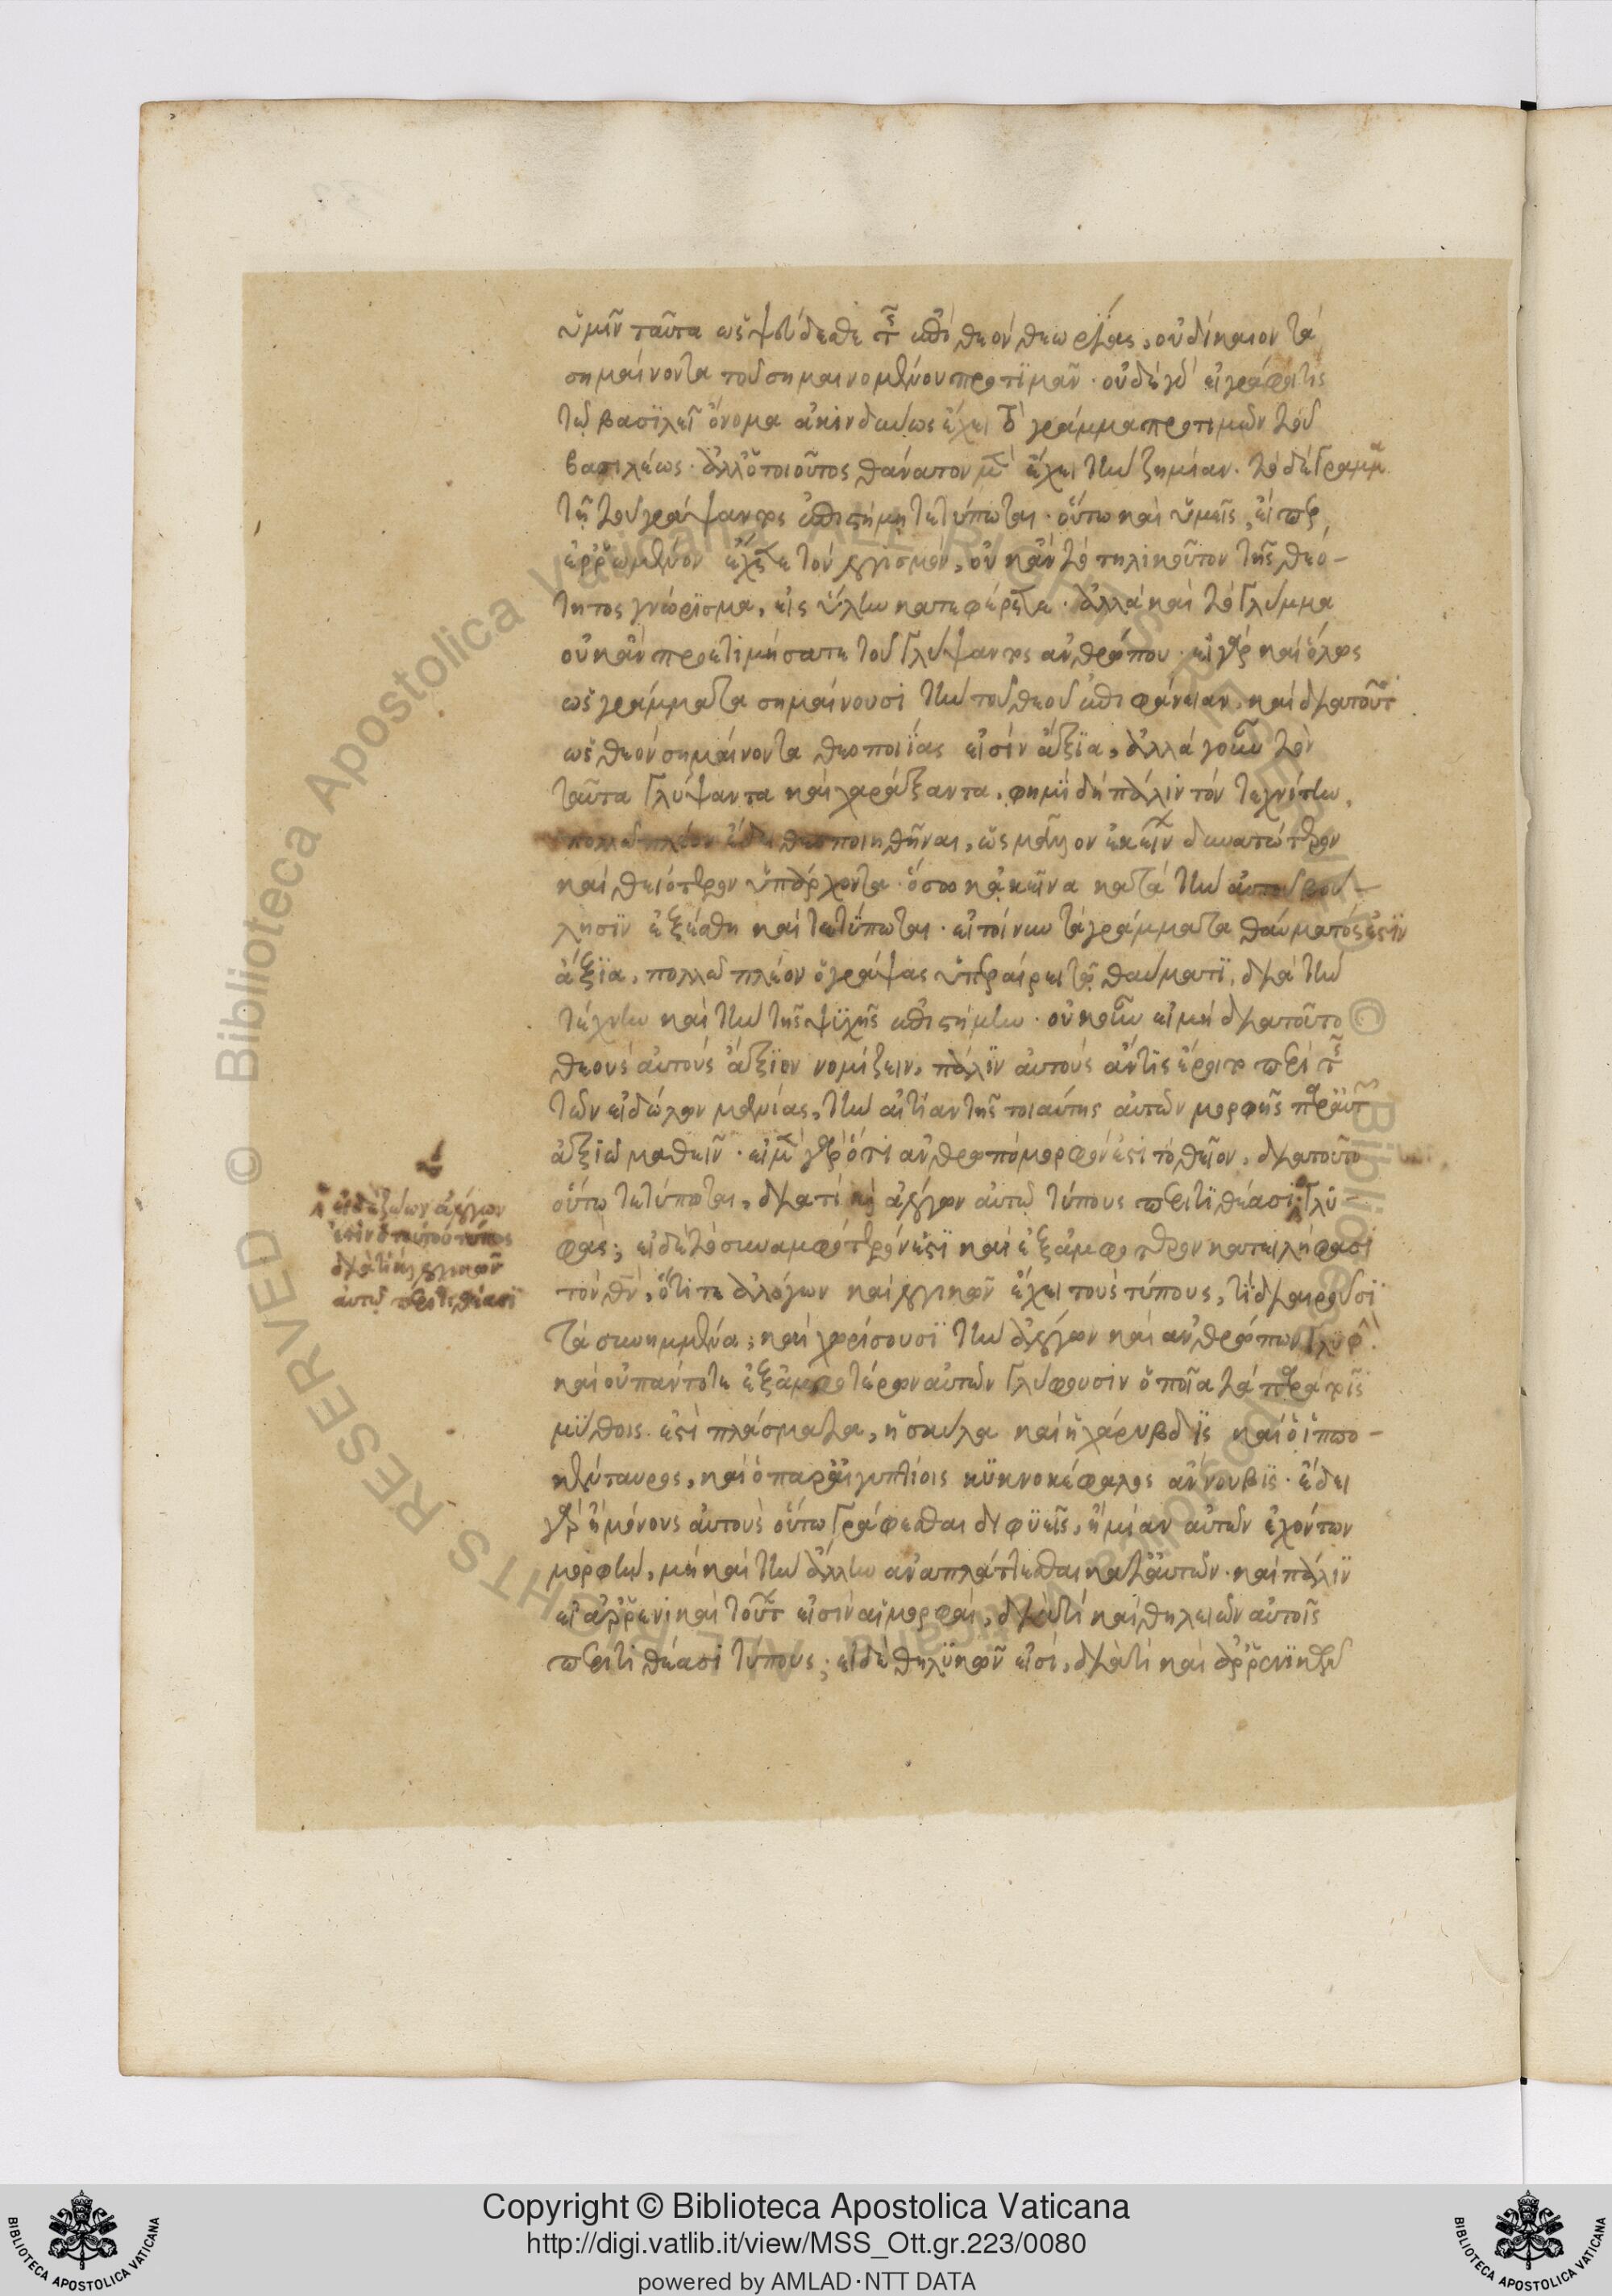 ὑμῖν ταῦτα ὡς ψεύδεσθε τῆς ἐπὶ θεὸν θεωρίας, οὐ δίκαιον τὰ
σημαίνοντα τοῦ σημαινομένου προτιμᾶν· οὐδὲ γὰρ εἰ γράφοι τις
τῷ βασιλεῖ ὄνομα ἀκινδύνως ἔχει τὸ γράμμα προτιμῶν τοῦ
βασιλέως· ἀλλ' ὁ τοιοῦτος θάνατον μὲν ἔχει τὴν ζημίαν· τὸ δὲ γράμμα
τῇ τοῦ γράψαντος ἐπιστήμῃ τετύπωται· οὕτω καὶ ὑμεῖς, εἴπερ
ἐρρωμένον εἴχετε τὸν λογισμὸν, οὐκ ἂν τὸ τηλικοῦτον τῆς θεό-
τητος γνώρισμα, εἰς ὕλην κατεφέρετε· ἀλλὰ καὶ τὸ γλύμμα
οὐκ ἂν προετιμήσατε τοῦ γλύψαντος ἀνθρώπου· εἰ γὰρ καὶ ὅλως
ὡς γράμματα σημαίνουσι τὴν τοῦ θεοῦ ἐπιφάνειαν, καὶ διὰ τοῦτο
ὡς θεὸν σημαίνοντα θεοποιίας εἰσὶν ἄξια, ἀλλὰ γοῦν τὸν
ταῦτα γλύψαντα καὶ χαράξαντα, φημὶ δὴ πάλιν τὸν τεχνίτην,
πολλῷ πλέον ἔδει θεοποιηθῆναι, ὡς μᾶλλον ἐκείνων δυνατώτερον
καὶ θειότερον ὑπάρχοντα· ὅσῳ κἀκεῖνα κατὰ τὴν αὐτοῦ βού-
λησιν ἐξέσθη καὶ τετύπωται· εἰ τοίνυν τὰ γράμματα θαύματός ἐστιν
ἄξια, πολλῷ πλέον ὁ γράψας ὑπεραίρει τῷ θαύματι, διὰ τὴν
τέχνην καὶ τὴν τῆς ψυχῆς ἐπιστήμην· οὐκοῦν εἰ μὴ διὰ τοῦτο
θεοὺς αὐτοὺς ἄξιον νομίζειν, πάλιν αὐτοὺς ἄν τις ἔροιτο περὶ τῆς
τῶν εἰδώλων μανίας, τὴν αἰτίαν τῆς τοιαύτης αὐτῶν μορφῆς παρ' αὐτῶν
ἀξιῶ μαθεῖν· εἰ μὲν γὰρ ὅτι ἀνθρωπόμορφόν ἐστι τὸ θεῖον, διὰ τοῦτο
οὕτω τετύπωται, διὰ τί καὶ ἀλόγων αὐτῷ τύπους περιτιθέασι, γλύ-
φας; εἰ δὲ τὸ συναμφότερόν ἐστι καὶ ἐξ ἀμφοτέρων κατειλήφασι
τὸν θεὸν, ὅτι τε ἀλόγων καὶ λογικῶν ἔχει τοὺς τύπους, τί διαιροῦσι
τὰ συνημμένα; καὶ χωρίζουσι τὴν ἀλόγων καὶ ἀνθρώπων γλυφὴν.
καὶ οὐ πάντοτε ἐξ ἀμφοτέρων αὐτῶν γλύφουσιν ὁποῖα τὰ παρὰ τοῖς
μύθοις ἐστὶ πλάσματα, ἡ σκύλα καὶ ἡ χάρυβδις καὶ ὁ ἱππο-
κένταυρος, καὶ ὁ παρ' αἰγυπτίοις κυκνοκέφαλος ἄννουβις· ἔδει
γὰρ ἢ μόνους αὐτοὺς οὕτω γράφεσθαι διφυεῖς, ἢ μίαν αὐτῶν ἐχόντων
μορφὴν, μὴ καὶ τὴν ἄλλην ἀναπλάττεσθαι κατ' αὐτῶν· καὶ πάλιν
εἰ ἀρρενικαὶ τούτων εἰσὶν αἱ μορφαὶ, διὰ τί καὶ θηλειῶν αὐτοῖς
περιτιθέασι τύπους; εἰ δὲ θηλυκῶν εἰσι, διὰ τί καὶ ἀρρενικῶν
εἰ δὲ ἐξ ἀλόγων
ἐστὶν αὐτοῦ ὁ τύπος
διὰ τί καὶ λογικῶν
αὐτῷ περιτιθέασι
© Biblioteca Apostolica Vaticana ALL RIGHTS RESERVED
Copyright © Biblioteca Apostolica Vaticana
http://digi.vatlib.it/view/MSS_Ott.gr.223/0080
powered by AMLAD·NTT DATA
BIBLIOTECA APOSTOLICA VATICANA
BIBLIOTECA APOSTOLICA VATICANA